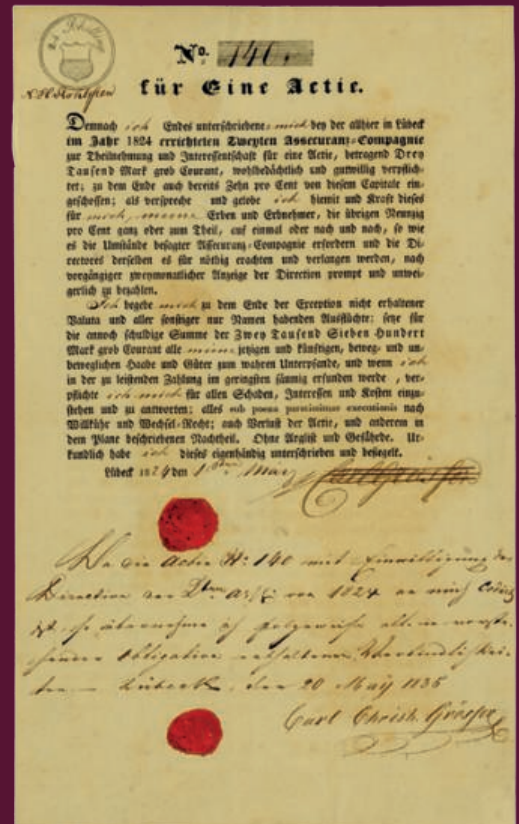 24 Schilling
No. 140.
für Eine Actie.
Demnach ich Endes unterschriebene mich bey der allhier in Lübeck
im Jahr 1824 errichteten Zweyten Assecuranz-Compagnie
zur Theilnehmung und Interessentschaft für eine Actie, betragend Drey
Tausend Mark grob Courant, wohlbedächtlich und gutwillig verpflich-
tet; zu dem Ende auch bereits Zehn pro Cent von diesem Capitale ein-
geschossen; als verspreche und gelobe ich hiemit und Kraft dieses
für mich, meine Erben und Erbnehmer, die übrigen Neunzig
pro Cent ganz oder zum Theil, auf einmal oder nach und nach, so wie
es die Umstände besagter Assecuranz-Compagnie erfordern und die Di-
rectores derselben es für nöthig erachten und verlangen werden, nach
vorgängiger zweymonatlicher Anzeige der Direction prompt und unwei-
gerlich zu bezahlen.
Ich begebe mich zu dem Ende der Exception nicht erhaltener
Valuta und aller sonstiger nur Namen habenden Ausflüchte: setze für
die annoch schuldige Summe der Zwey Tausend Sieben Hundert
Mark grob Courant alle meine jetzigen und künftigen, beweg- und un-
beweglichen Haabe und Güter zum wahren Unterpfande, und wenn ich
in der zu leistenden Zahlung im geringsten säumig erfunden werde, ver-
pflichte ich mich für allen Schaden, Interessen und Kosten einzu-
stehen und zu antworten; alles sub poena paratissimae executionis nach
Willkühr und Wechsel-Recht; auch Verlust der Actie, und anderem in
dem Plane beschriebenen Nachtheil. Ohne Arglist und Gefährde. Ur-
kundlich habe ich dieses eigenhändig unterschrieben und besiegelt.
Lübeck 1824 den May
Da die Actie No. 140 mit Einwilligung der
Direction der 2ten Ass. C. von 1824 an mich
ist, so übernehme ich folgeweise alle in vorste-
hender Obligation enthaltenen Verbindlichkei-
ten Lübeck, den 20 May 1835
Carl Christ. Grösser